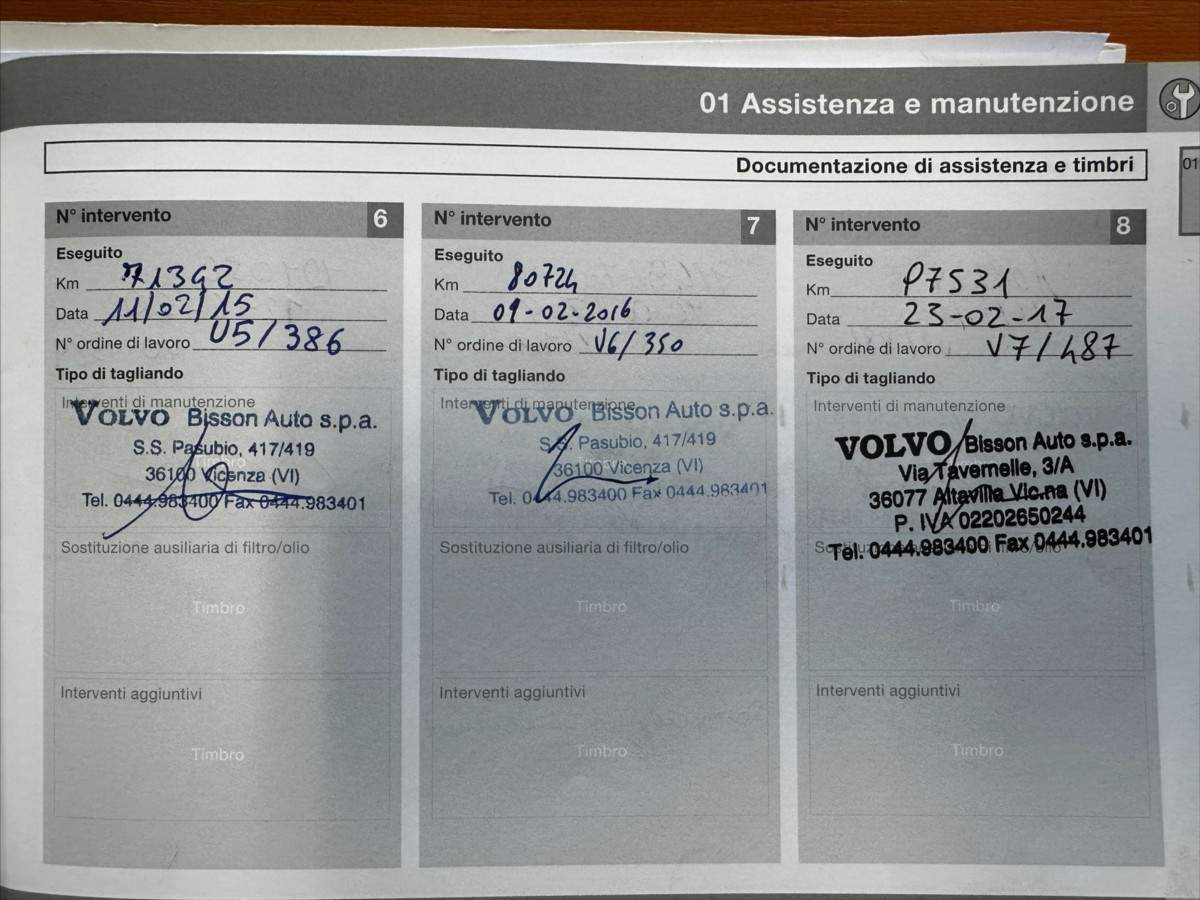 01 Assistenza e manutenzione
Documentazione di assistenza e timbri
01
N° intervento 6
Eseguito
Km 71392
Data 11/02/15
N° ordine di lavoro U5/386
Tipo di tagliando
Interventi di manutenzione
VOLVO Bisson Auto s.p.a.
S.S. Pasubio, 417/419
Timbro
36100 Vicenza (VI)
Tel. 0444.983400 Fax 0444.983401
Sostituzione ausiliaria di filtro/olio
Timbro
Interventi aggiuntivi
Timbro
N° intervento 7
Eseguito
Km 80724
Data 09-02-2016
N° ordine di lavoro V6/350
Tipo di tagliando
Interventi di manutenzione
VOLVO Bisson Auto s.p.a.
S.S. Pasubio, 417/419
36100 Vicenza (VI)
Tel. 0444.983400 Fax 0444.983401
Sostituzione ausiliaria di filtro/olio
Timbro
Interventi aggiuntivi
Timbro
N° intervento 8
Eseguito
Km
Data 23-02-17
N° ordine di lavoro V7/487
Tipo di tagliando
Interventi di manutenzione
VOLVO Bisson Auto s.p.a.
Via Tavernelle, 3/A
36077 Altavilla Vic.na (VI)
P. IVA 02202650244
Tel. 0444.983400 Fax 0444.983401
Timbro
Interventi aggiuntivi
Timbro